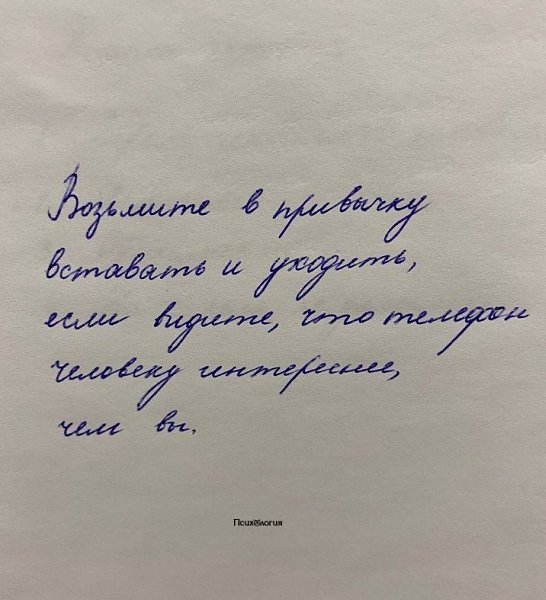 Возьмите в привычку
вставать и уходить,
если видите, что телефон
человеку интереснее,
чем вы.
Психология